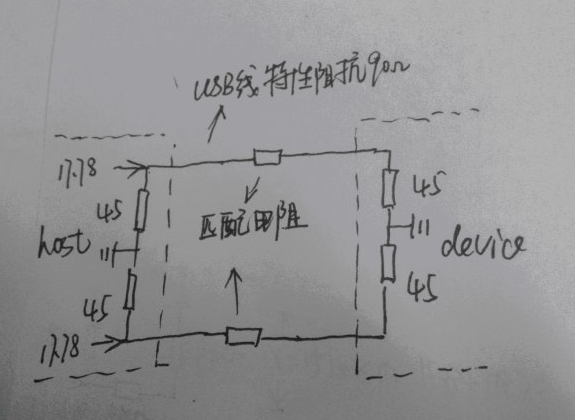 USB线特性阻抗90Ω
17.78
45
45
host
匹配电阻
device
45
45
17.78